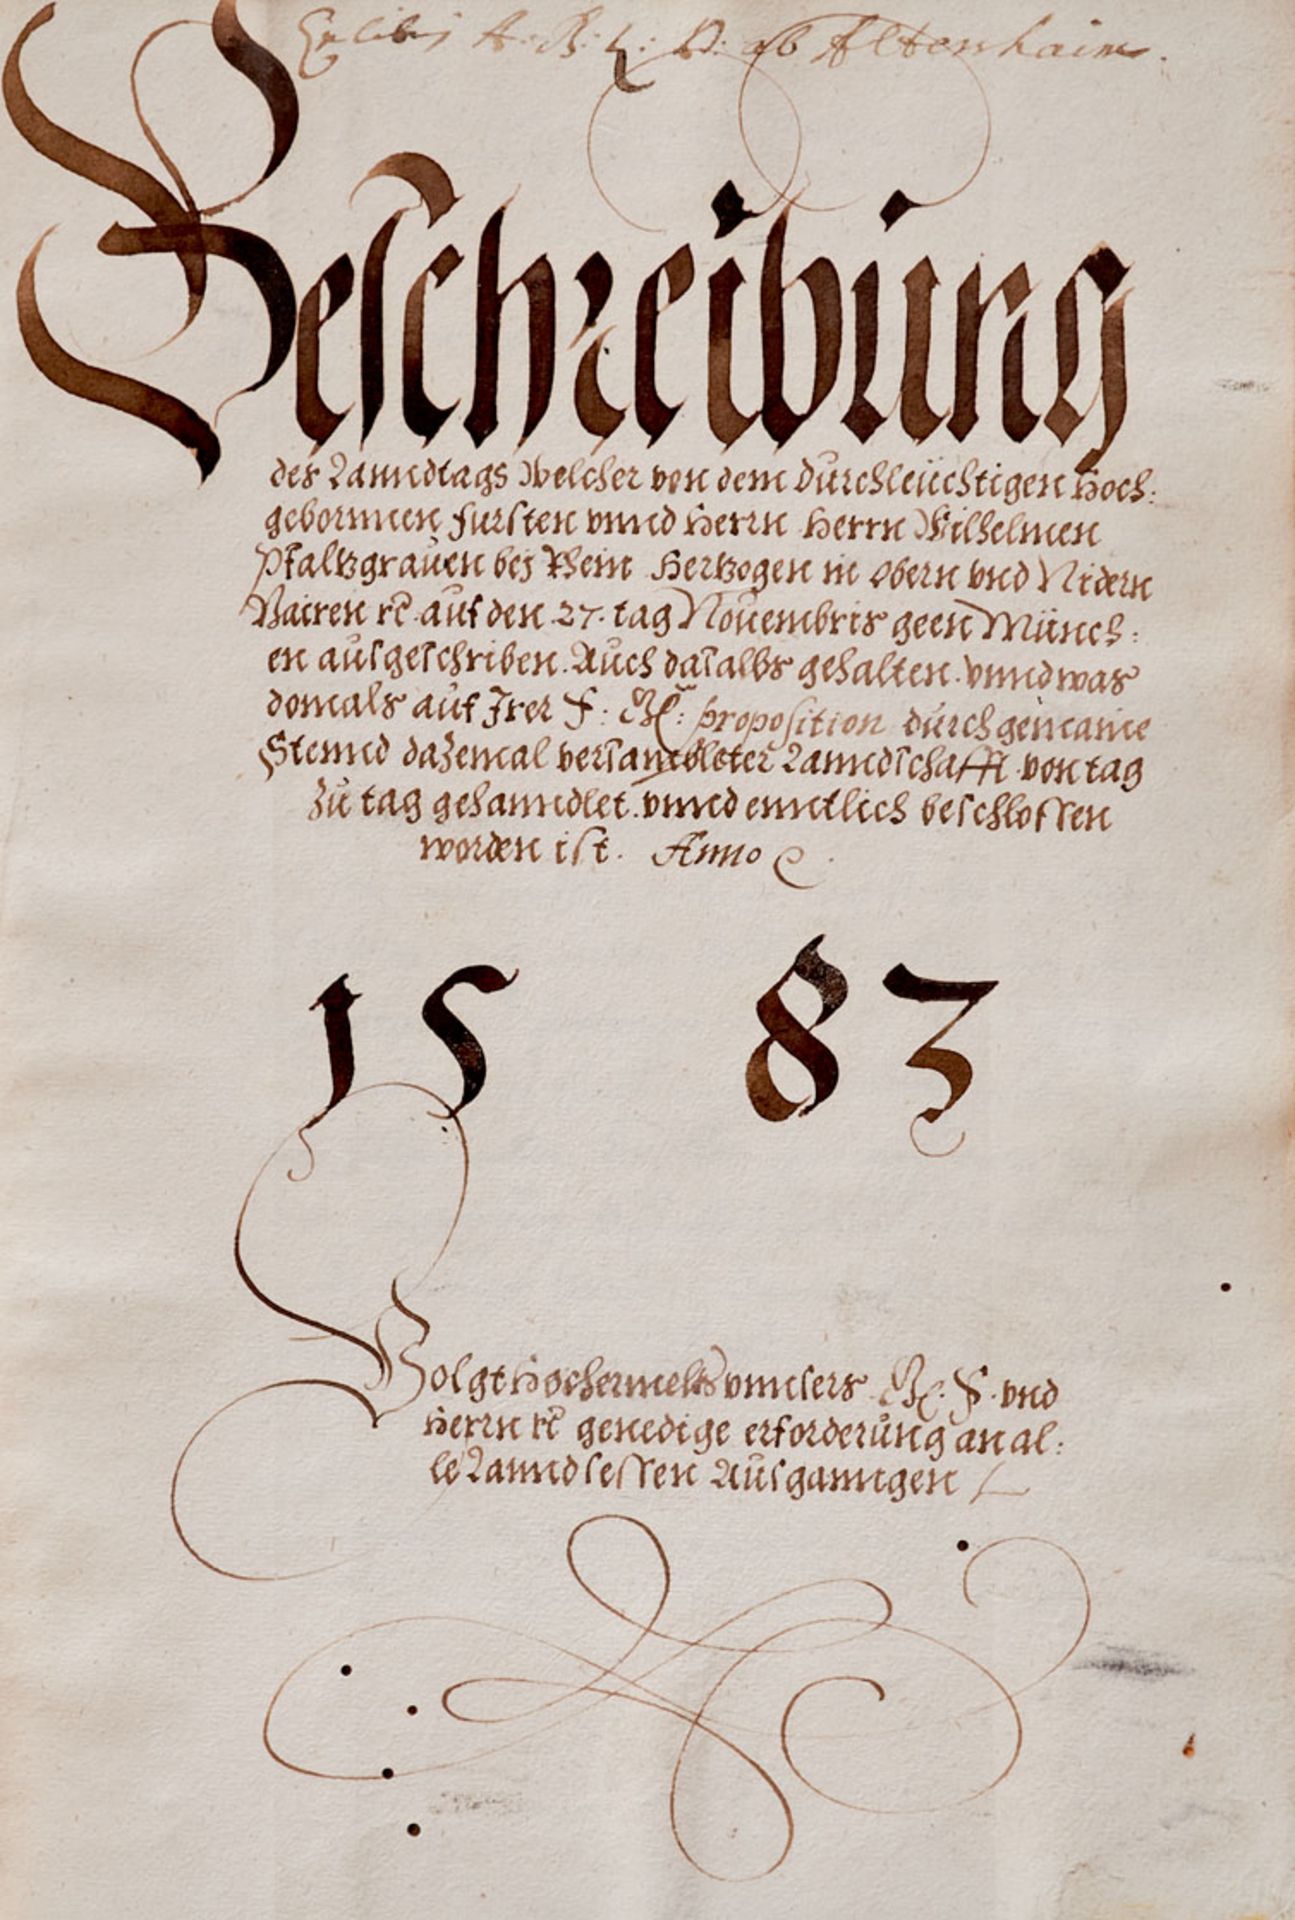 Ex libris A: B: L: B: ab Altenhaim.
Beschreibung
des Lanndtags Welcher von dem Durchleüchtigen Hoch:
gebornnen fursten vnnd Herrn Herrn Wilhelmen
Pfaltzgrauen bej Rhein Hertzogen in Obern vnd Nidern
Bairen rc̃ auf den 27. tag Nouembris geen Münch:
en ausgeschriben. Auch daselbs gehalten. vnnd was
domals auf Irer F: G: proposition durch gemaine
Stennd dazemal versambleter Lanndtschafft von tag
zu tag gehanndlet. vnnd enntlich beschlossen
worden ist. Anno
1583
Volgt Hochermelts vnnsers G. F. vnd
Herrn rc̃ genedige erforderung an al:
le Lanndsessen Ausganngen